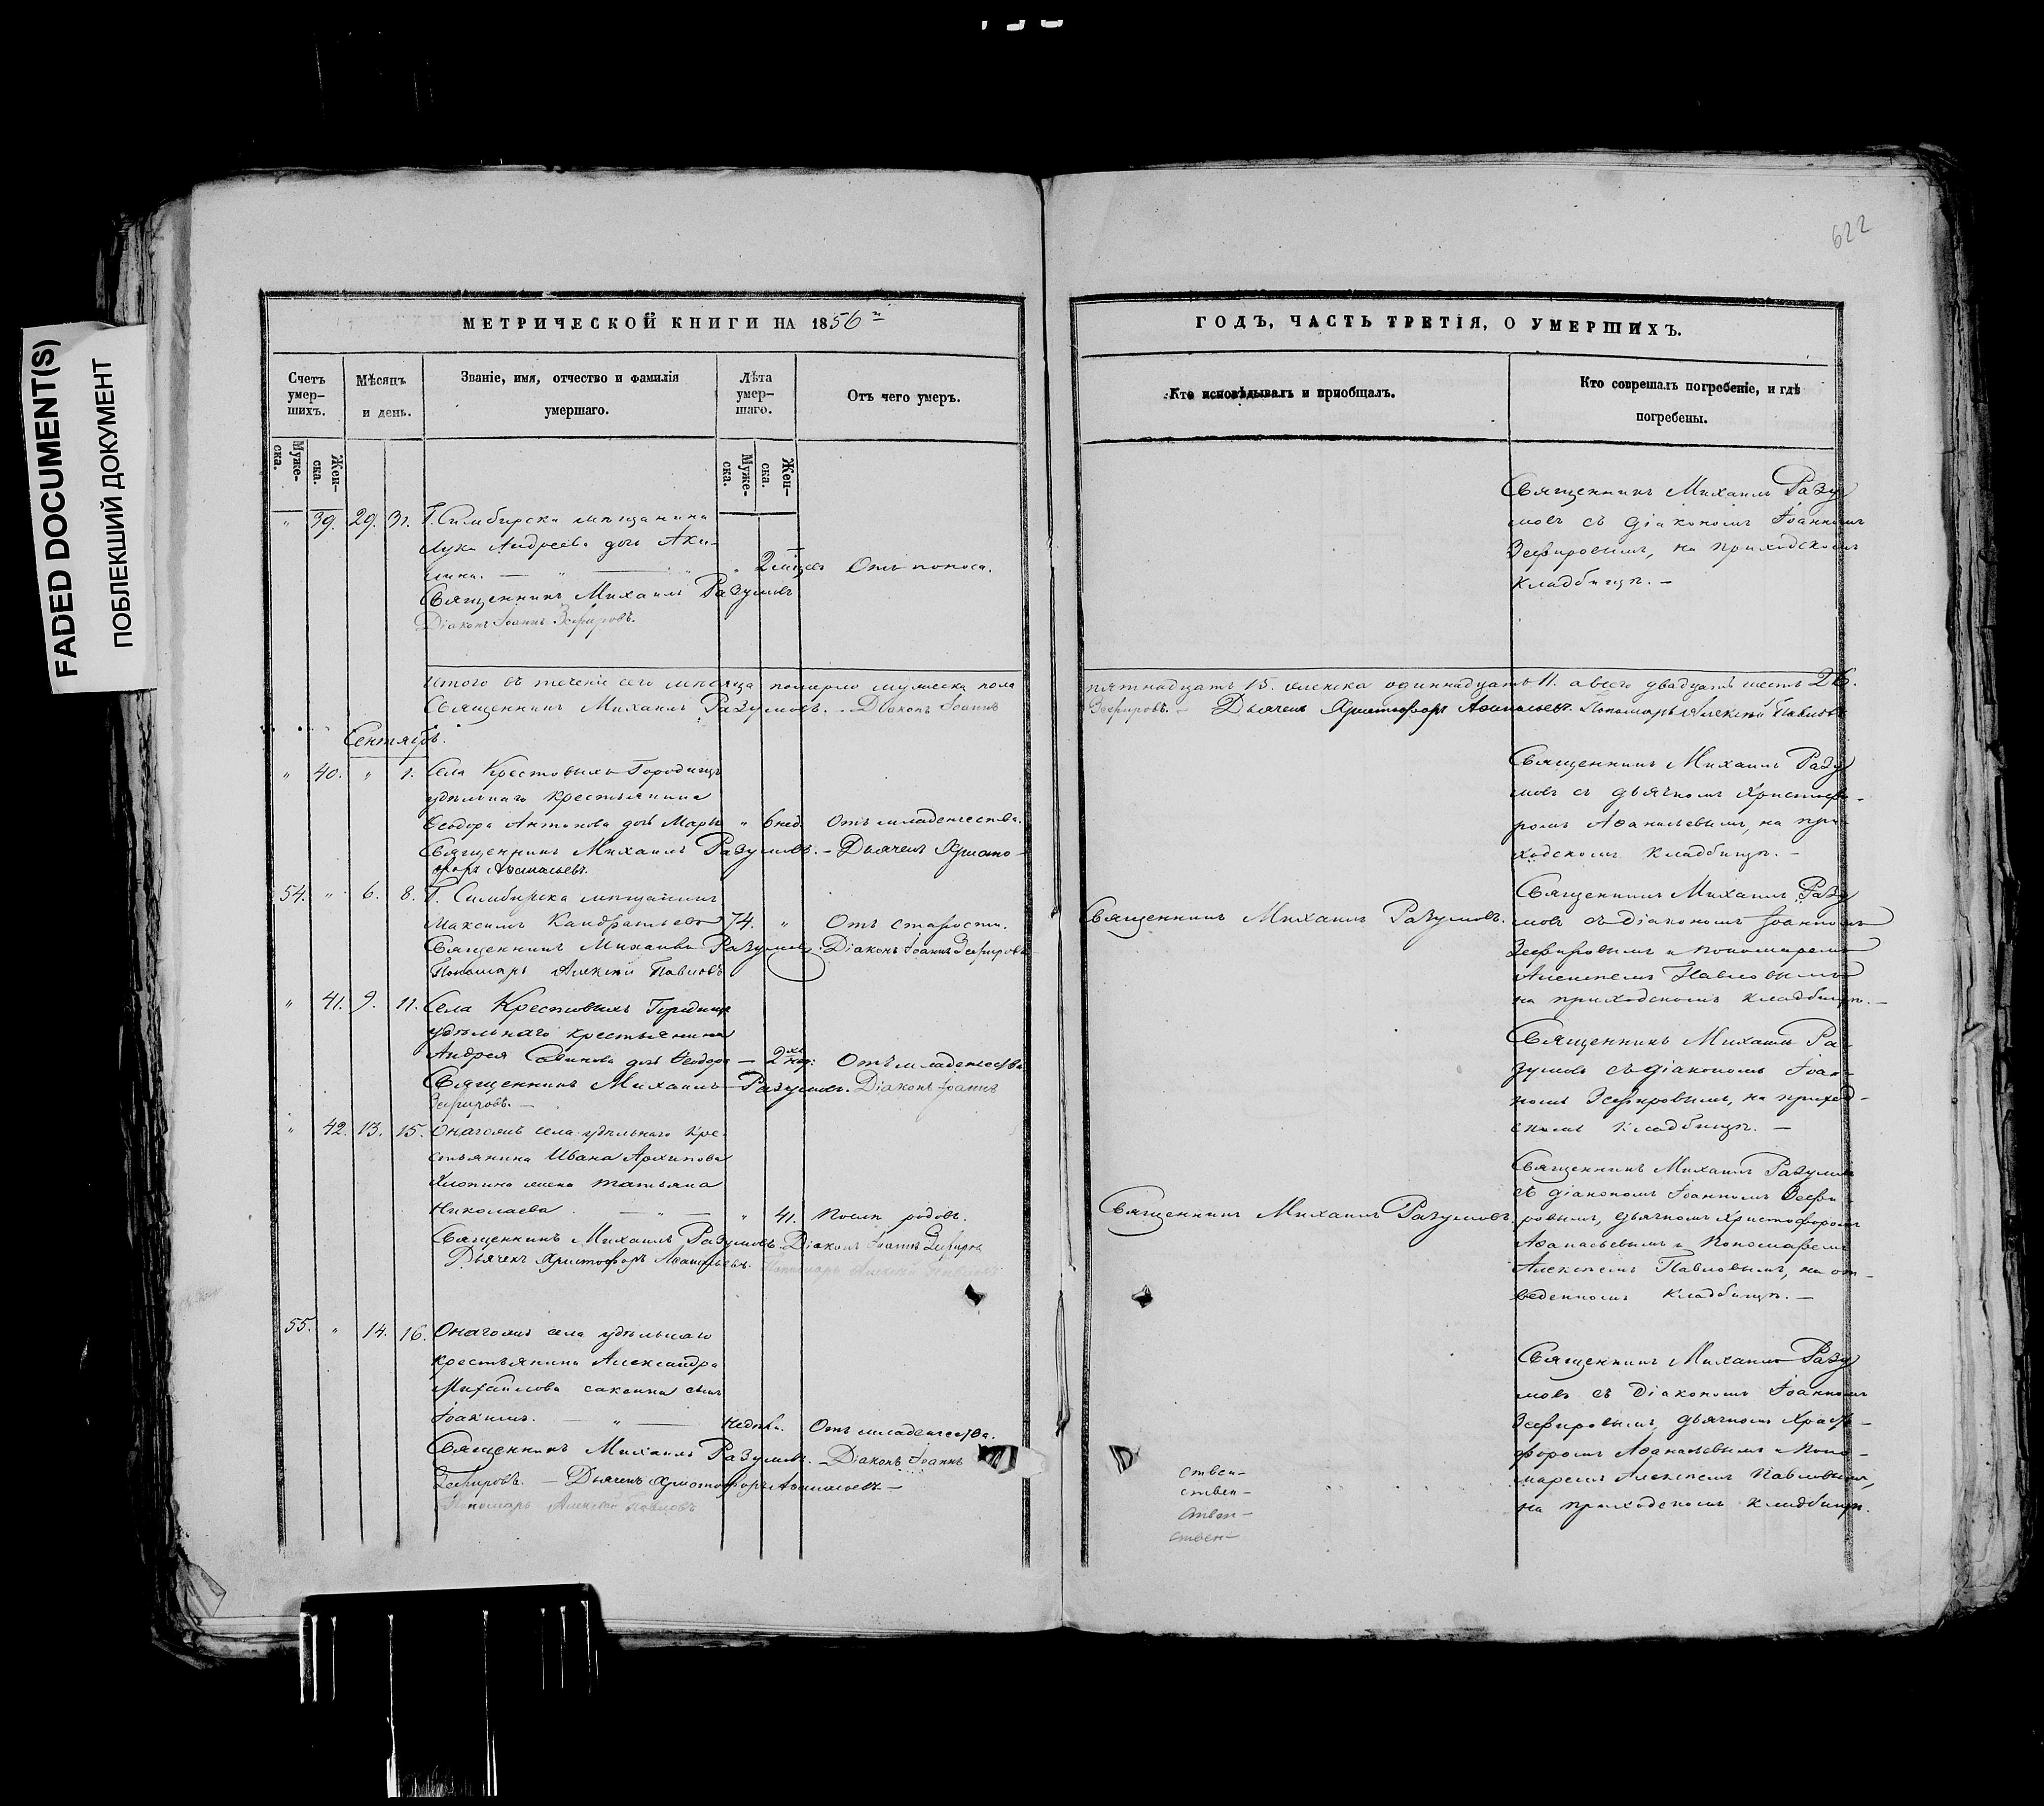 622
FADED DOCUMENT(S)
ПОБЛЕКШИЙ ДОКУМЕНТ
МЕТРИЧЕСКОЙ КНИГИ НА 1856й
Счетъ умер-
шихъ.
Мѣсяцъ
и день.
Званіе, имя, отчество и фамилія
умершаго.
Лѣта
умер-
шаго.
Отъ чего умеръ.
Муже-
ска.
Жен-
ска.
Муже-
ска.
Жен-
ска.
" 39. 29. 31. Г. Симбирска мѣщанина
Луки Андреева дочь Аки-
лина. — " — " 2 мѣсяц. Отъ поноса.
Священникъ Михаилъ Разумовъ
Діаконъ Іоаннъ Зефировъ.
Итого въ теченіе сего мѣсяца померло мужеска пола
Священникъ Михаилъ Разумовъ. – Діаконъ Іоаннъ
Сентябрь.
" 40. " 1. Села Крестовыхъ Городищъ
удѣльнаго крестьянина
Ѳеодора Антонова дочь Марѳа " 6 нед. Отъ младенчества.
Священникъ Михаилъ Разумовъ. – Дьячекъ Христо-
форъ Аѳанасьевъ.
54. " 6. 8. Г. Симбирска мѣщанинъ
Максимъ Кандратьевъ 74. " Отъ старости.
Священникъ Михаилъ Разумовъ Діаконъ Іоаннъ Зефировъ
Пономарь Алексѣй Павловъ
" 41. 9. 11. Села Крестовыхъ Городищъ
удѣльнаго крестьянина
Андрея Савинова дочь Ѳеодора — 2хъ нед: Отъ младенчества
Священникъ Михаилъ Разумовъ. Діаконъ Іоаннъ
Зефировъ. —
" 42. 13. 15. Онагожъ села удѣльнаго кре-
стьянина Ивана Архипова
Хлопина жена Татьяна
Николаева. — " — " 41. Послѣ родовъ.
Священникъ Михаилъ Разумовъ. Діаконъ Іоаннъ Зефировъ
Дьячекъ Христофоръ Аѳанасьевъ. Пономарь Алексѣй Павловъ
55. " 14. 16. Онагожъ села удѣльнаго
крестьянина Александра
Михайлова Саксина сынъ
Іоакимъ. — " — недѣли. Отъ младенчества.
Священникъ Михаилъ Разумовъ. – Діаконъ Іоаннъ
Зефировъ. — Дьячекъ Христофоръ Аѳанасьевъ —
Пономарь Алексѣй Павловъ
ГОДЪ, ЧАСТЬ ТРЕТІЯ, О УМЕРШИХЪ.
Кто исповѣдывалъ и пріобщалъ.
Кто совершалъ погребеніе, и гдѣ
погребены.
Священникъ Михаилъ Разу
мовъ съ діакономъ Іоанномъ
Зефировымъ, на приходскомъ
кладбищѣ. –
пятнадцать 15. женска одиннадцать 11. а всего двадцать шесть 26.
Зефировъ. – Дьячекъ Христофоръ Аѳанасьевъ. Пономарь Алексѣй Павловъ
Священникъ Михаилъ Разу
мовъ съ дьячкомъ Христофо-
ромъ Аѳанасьевымъ, на при-
ходскомъ кладбищѣ. –
Священникъ Михаилъ Разу
Священникъ Михаилъ Разумовъ. мовъ съ діакономъ Іоанномъ
Зефировымъ и пономаремъ
Алексѣемъ Павловымъ
на приходскомъ кладбищѣ. –
Священникъ Михаилъ Ра-
зумовъ съ діакономъ Іоан-
номъ Зефировымъ, на приход-
скомъ кладбищѣ. –
Священникъ Михаилъ Разумовъ
съ діакономъ Іоанномъ Зефи-
Священникъ Михаилъ Разумовъ. ровымъ, дьячкомъ Христофоромъ
Аѳанасьевымъ и пономаремъ
Алексѣемъ Павловымъ, на от-
веденномъ кладбищѣ. –
Священникъ Михаилъ Разу
мовъ съ діакономъ Іоанномъ
Зефировымъ, дьячкомъ Христо-
форомъ Аѳанасьевымъ и поно-
маремъ Алексѣемъ Павловымъ,
на приходскомъ кладбищѣ.
ствен-
ствен-
ствен-
ствен-